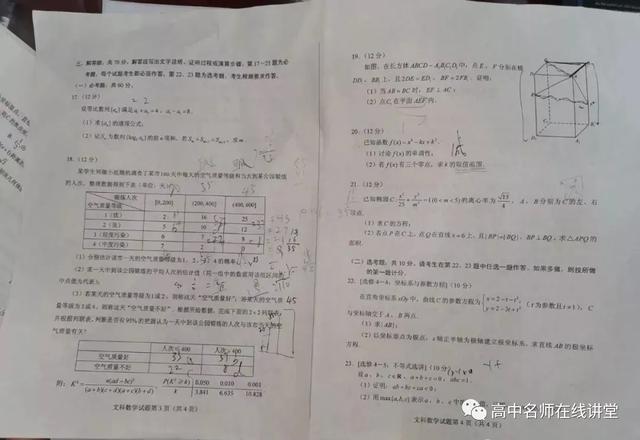 三、解答题：共70分。解答应写出文字说明、证明过程或演算步骤。第17~21题为必
考题，每个试题考生都必须作答。第22、23题为选考题，考生根据要求作答。
（一）必考题：共60分。
17.（12分）
设等比数列{aₙ}满足a₁+a₂=4，a₃-a₁=8.
（1）求{aₙ}的通项公式；
（2）记Sₙ为数列{log₃aₙ}的前n项和．若Sₘ+Sₘ₊₁=Sₘ₊₃，求m.
18.（12分）
某学生兴趣小组随机调查了某市100天中每天的空气质量等级和当天到某公园锻炼
的人次，整理数据得到下表（单位：天）：
锻炼人次
空气质量等级
[0,200] (200,400] (400,600]
1（优） 2 16 25
2（良） 5 10 12
3（轻度污染） 6 7 8
4（中度污染） 7 2 0
（1）分别估计该市一天的空气质量等级为1，2，3，4的概率；
（2）求一天中到该公园锻炼的平均人次的估计值（同一组中的数据用该组区间的
中点值为代表）；
（3）若某天的空气质量等级为1或2，则称这天“空气质量好”；若某天的空气质
量等级为3或4，则称这天“空气质量不好”．根据所给数据，完成下面的2×2列联表，
并根据列联表，判断是否有95%的把握认为一天中到该公园锻炼的人次与该市当天的空
气质量有关？
人次≤400 人次>400
空气质量好
空气质量不好
附：K²=n(ad-bc)²/((a+b)(c+d)(a+c)(b+d))
P(K²≥k) 0.050 0.010 0.001
k 3.841 6.635 10.828
文科数学试题第3页（共4页）
19.（12分）
如图，在长方体ABCD-A₁B₁C₁D₁中，点E，F分别在棱
DD₁，BB₁上，且2DE=ED₁，BF=2FB₁．证明：
（1）当AB=BC时，EF⊥AC；
（2）点C₁在平面AEF内.
20.（12分）
已知函数f(x)=x³-kx+k².
（1）讨论f(x)的单调性；
（2）若f(x)有三个零点，求k的取值范围.
21.（12分）
已知椭圆C：x²/25+y²/m²=1(0<m<5)的离心率为√15/4，A，B分别为C的左、右
顶点.
（1）求C的方程；
（2）若点P在C上，点Q在直线x=6上，且|BP|=|BQ|，BP⊥BQ，求△APQ的
面积.
（二）选考题：共10分。请考生在第22、23题中任选一题作答。如果多做，则按所做
的第一题计分。
22. [选修4-4：坐标系与参数方程]
在直角坐标系xOy中，曲线C的参数方程为{x=2-t-t², y=2-3t+t²（t为参数且t≠1），C
与坐标轴交于A，B两点.
（1）求|AB|；
（2）以坐标原点为极点，x轴正半轴为极轴建立极坐标系，求直线AB的极坐标
方程.
23. [选修4-5：不等式选讲]（10分）
设a，b，c∈R，a+b+c=0，abc=1.
（1）证明：ab+bc+ca<0；
（2）用max{a,b,c}表示a，b，c中
文科数学试题第4页（共4页）
高中名师在线讲堂